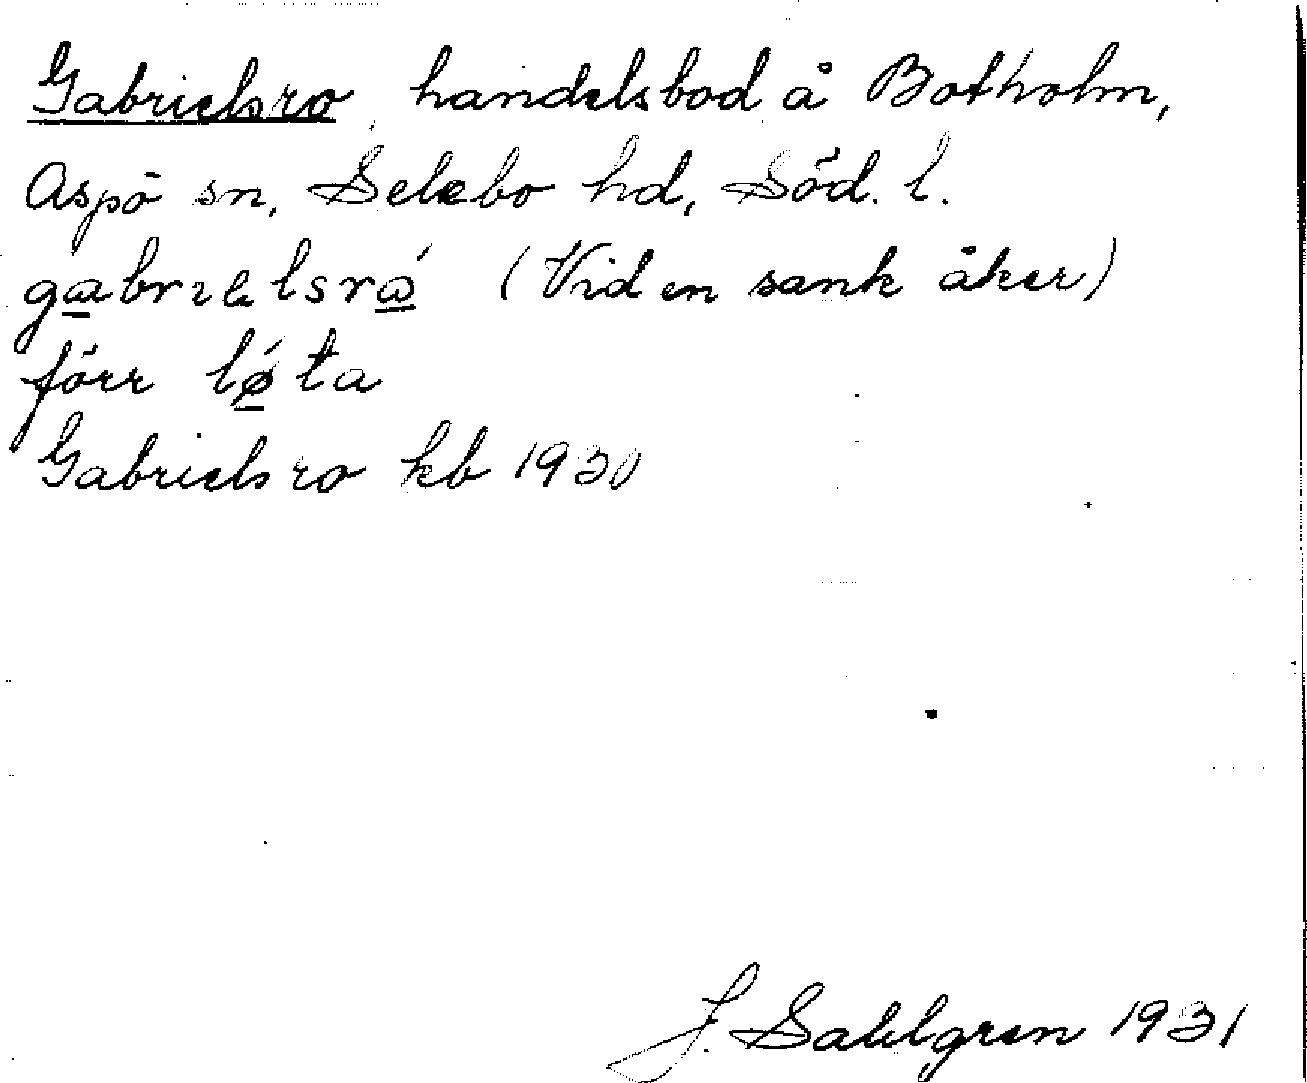 Gabrielsro handelsbod å Botholm,
Aspö sn, Selebo hd, Söd. l.
gabrıelsró (Vid en sank åker)
förr lǿta
Gabrielsro kb 1930
J. Sahlgren 1931